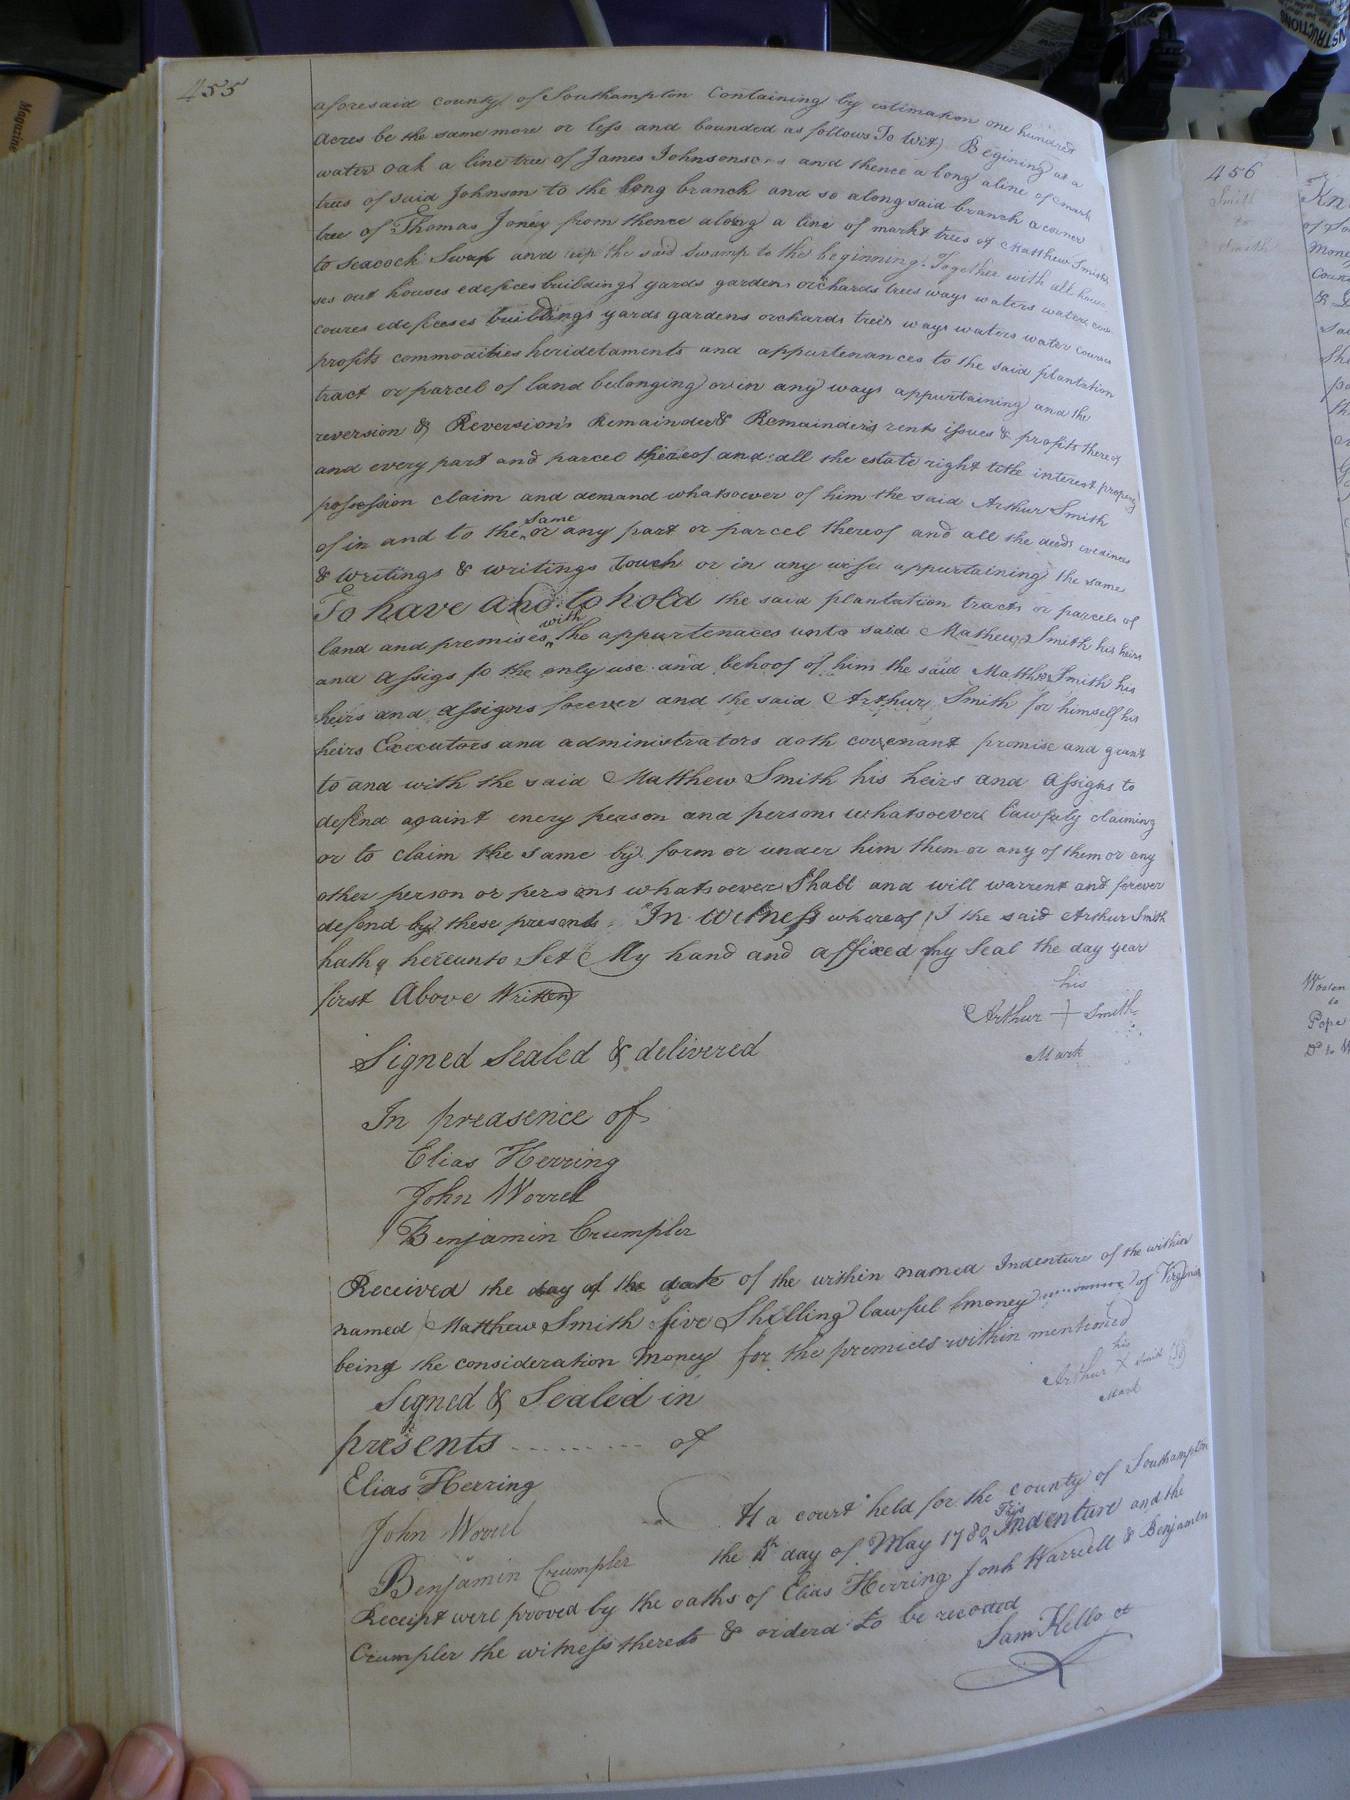 455
aforesaid county of Southampton Containing by estimation one hundred
Acres be the same more or less and bounded as follows To wit) Begining at a
water oak a line tree of James Johnsons and thence a long a line of mark
trees of said Johnson to the long branch and so along said branch a corner
tree of Thomas Jones from thence along a line of markt trees of Matthew Smiths
to Seacock Swap and up the said Swamp to the beginning. Together with all hous
ses out houses edefices buildings yards gardens orchards trees ways waters water cou
coures edefieses buildings yards gardens orchards trees ways waters water courses
profits commodities heridetaments and appurtenances to the said plantation
tract or parcel of land belonging or in any ways appurtaining and the
reversion & Reversion's Remainder & Remainders rents issues & profits thereof
and every part and parcel thereof and all the estate right title interest property
possession claim and demand whatsoever of him the said Arthur Smith
of in and to the same or any part or parcel thereof and all the deeds evedinces
& writings & writings touch or in any wise appurtaining the same
To have and to hold the said plantation tracts or parcels of
land and premises with the appurtenaces unto said Mathew Smith his heirs
and assigs to the only use and behoof of him the said Matthew Smith his
heirs and assigns forever and the said Arthur Smith for himself his
heirs Executors and administrators doth covenant promise and grant
to and with the said Matthew Smith his heirs and assigns to
defend againt enery person and persons whatsoever lawfuly claiming
or to claim the same by form or under him them or any of them or any
other person or persons whatsoever Shall and will warrent and forever
defend by these presents. In witness whereof I the said Arthur Smith
hath hereunto Set My hand and affixed my Seal the day year
first Above Written
his
Arthur + Smith
Mark
Signed Sealed & delivered
In preasence of
Elias Herring
John Worrel
Benjamin Crumpler
Received the day of the date of the within named Indenture of the within
named Matthew Smith five Shilling lawful money of Virginia
being the consideration Money for the premices within mentioned
his
Arthur X Smith
Mark
Signed & Sealed in
presents of
Elias Herring
John Worrel
Benjamin Crumpler
At a court held for the county of Southampton
the 11th day of May 1780 This Indenture and the
Receipt were proved by the oaths of Elias Herring Jonh Warriell & Benjamin
Crumpler the witness thereto & orderd to be recoded
Sam Kello ct
456
Smith
to
Smith
Kn
Pope